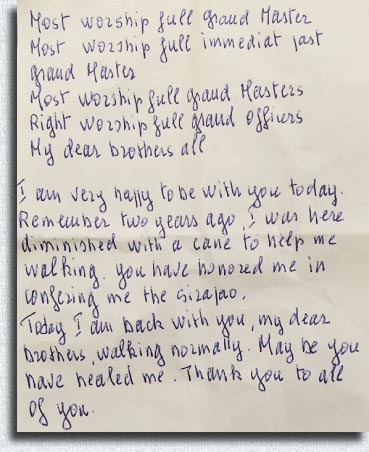 Most worship full grand Master
Most worship full immediat past
grand Master
Most worship full grand Masters
Right worship full grand officiers
My dear brothers all
I am very happy to be with you today.
Remember two years ago, I was here
diminished with a cane to help me
walking. you have honored me in
confering me the
Today I am back with you, my dear
brothers, walking normally. May be you
have healed me. Thank you to all
of you.